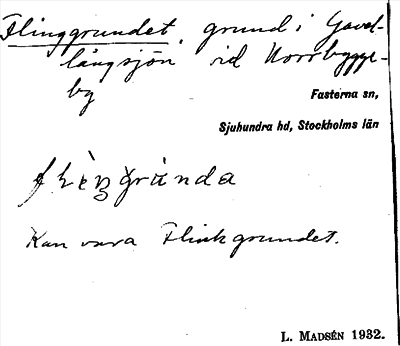 Flinggrundet, grund i Gavel-
långsjön vid Norrbygge-
by
Fasterna sn,
Sjuhundra hd, Stockholms län
Kan vara Flinkgrundet.
L. MADSÉN 1932.